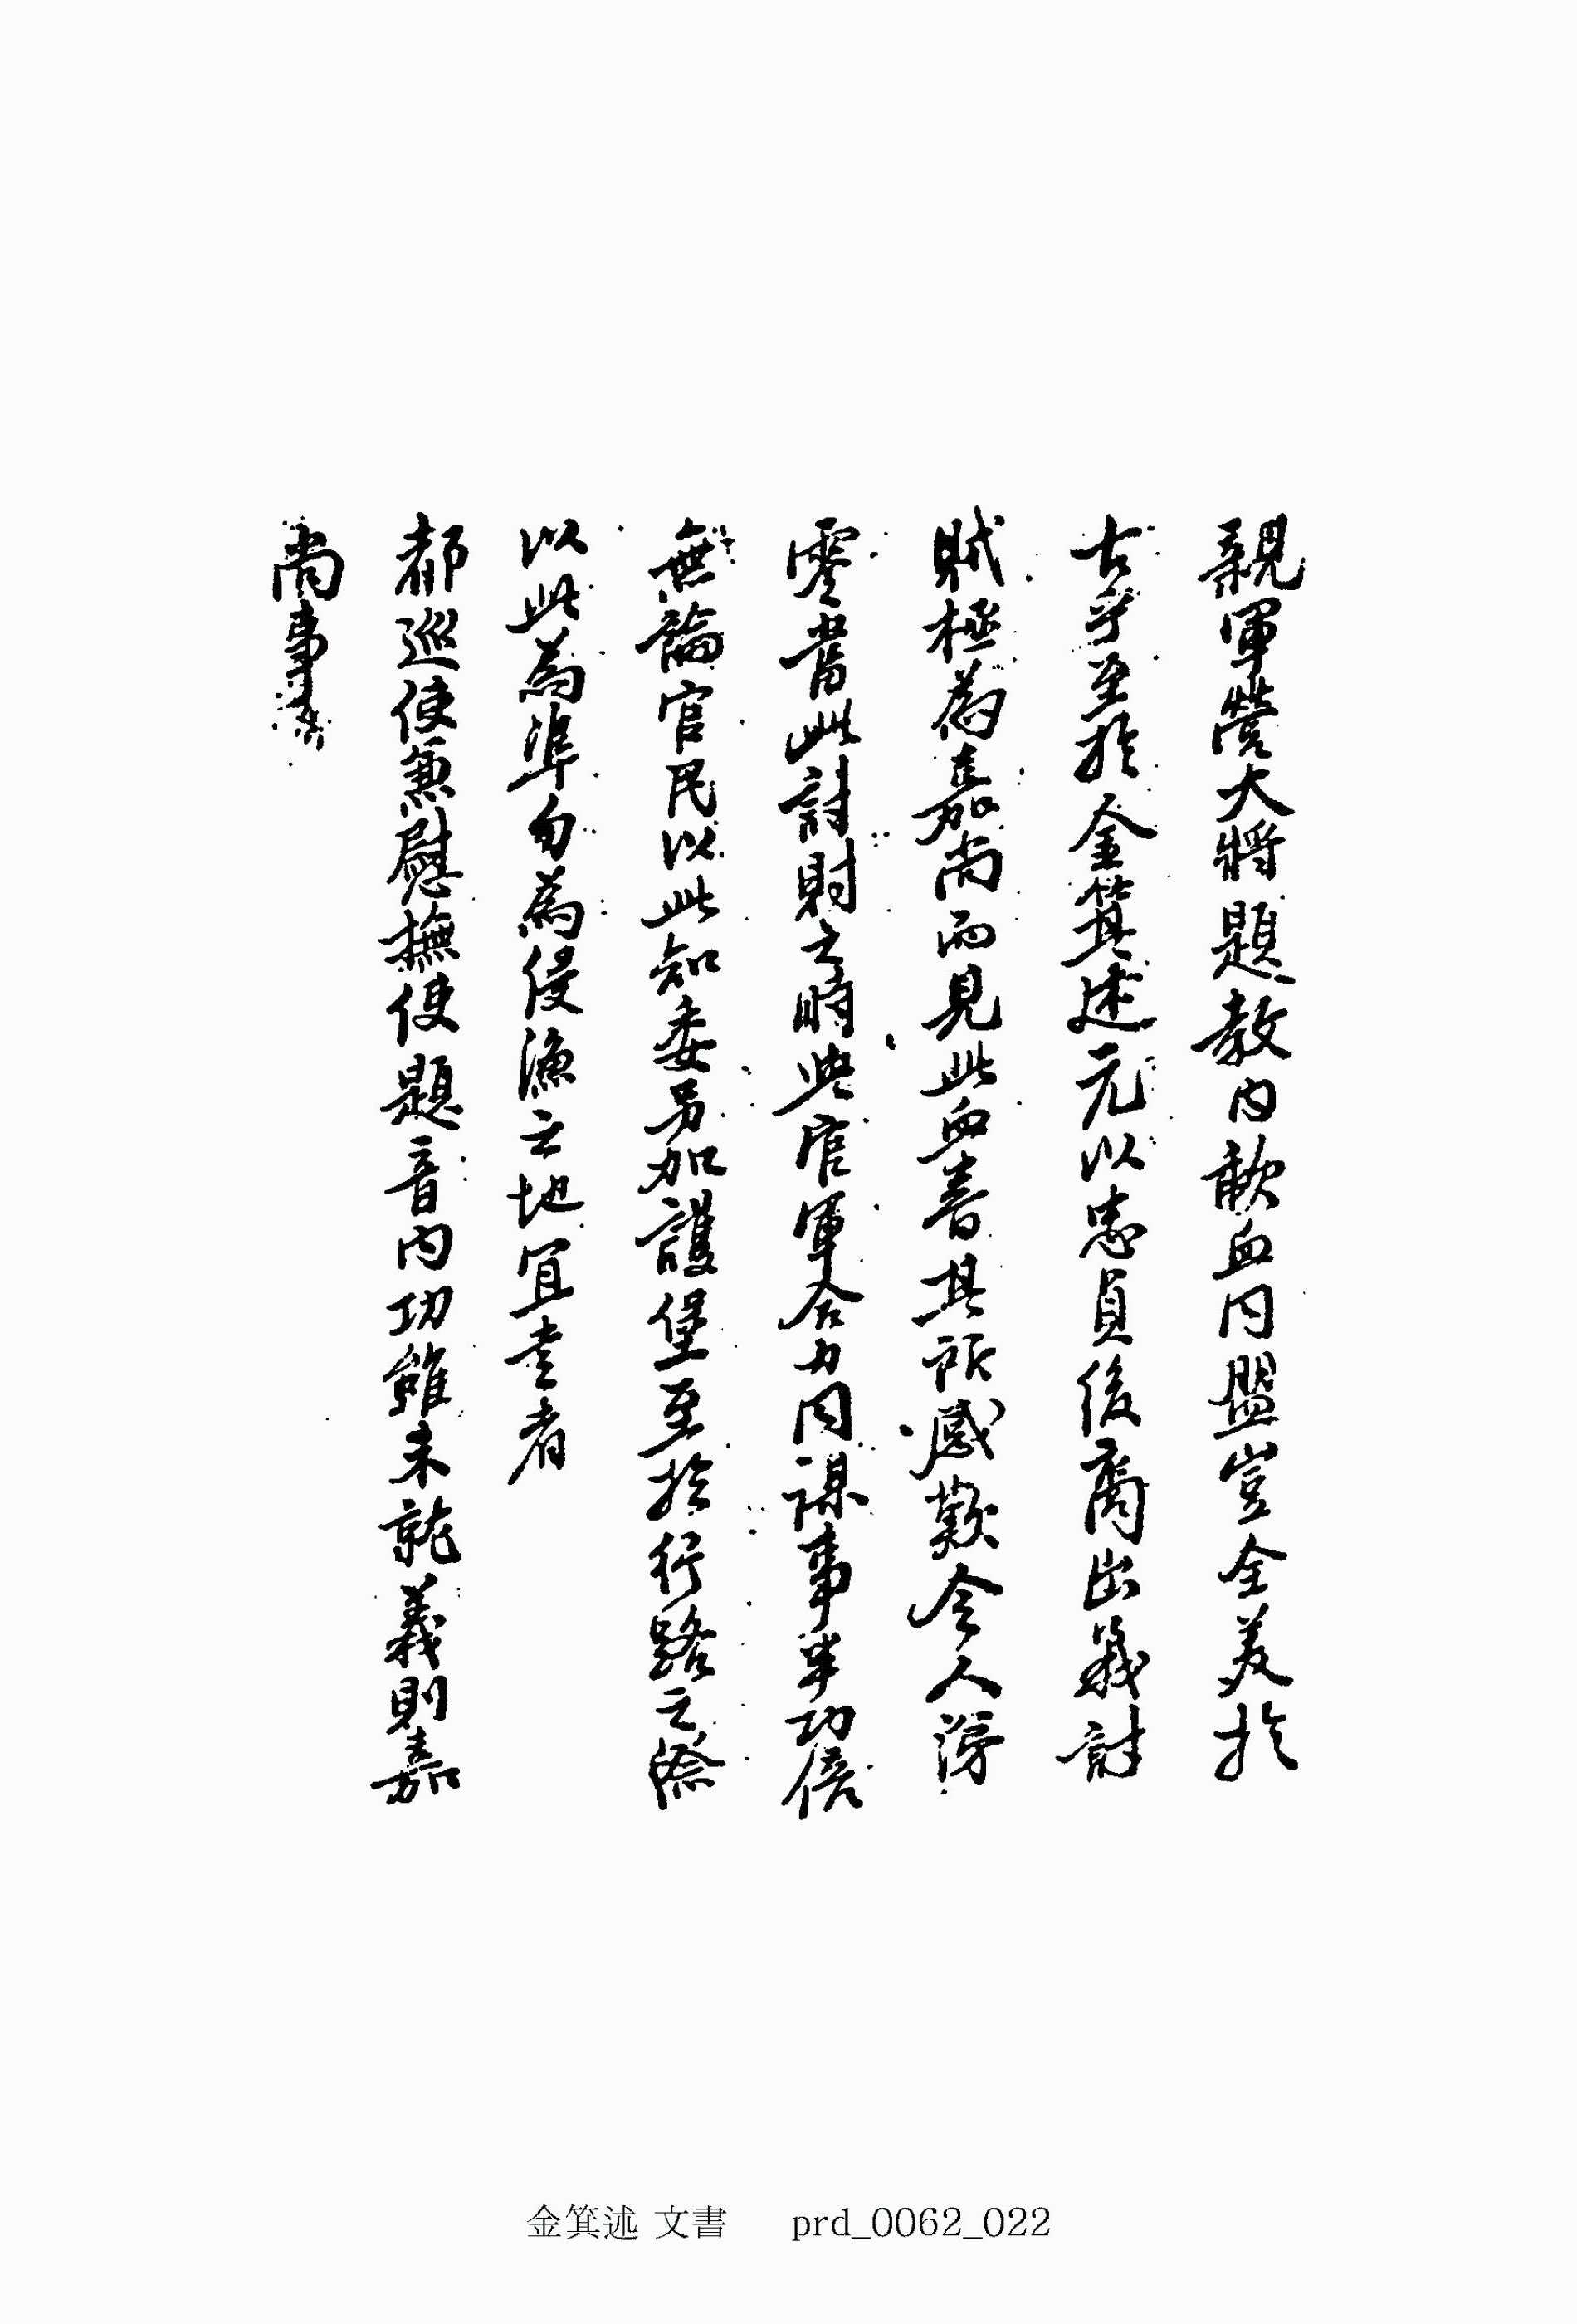 親軍營大將題教內歃血同盟豈全美於
古乎至於金箕述元以忠貞後裔出義討
賊極爲嘉尚而見此血書其所感歎令人淂
零當此討財之時與官軍合力同謀事半功倍
無論官民以此知委另加護堡至於行路之際
以此為準勿為侵漁之地宜壹者
都巡使兼慰撫使題音內功雖未就義則嘉
尚事
金箕述 文書 prd_0062_022